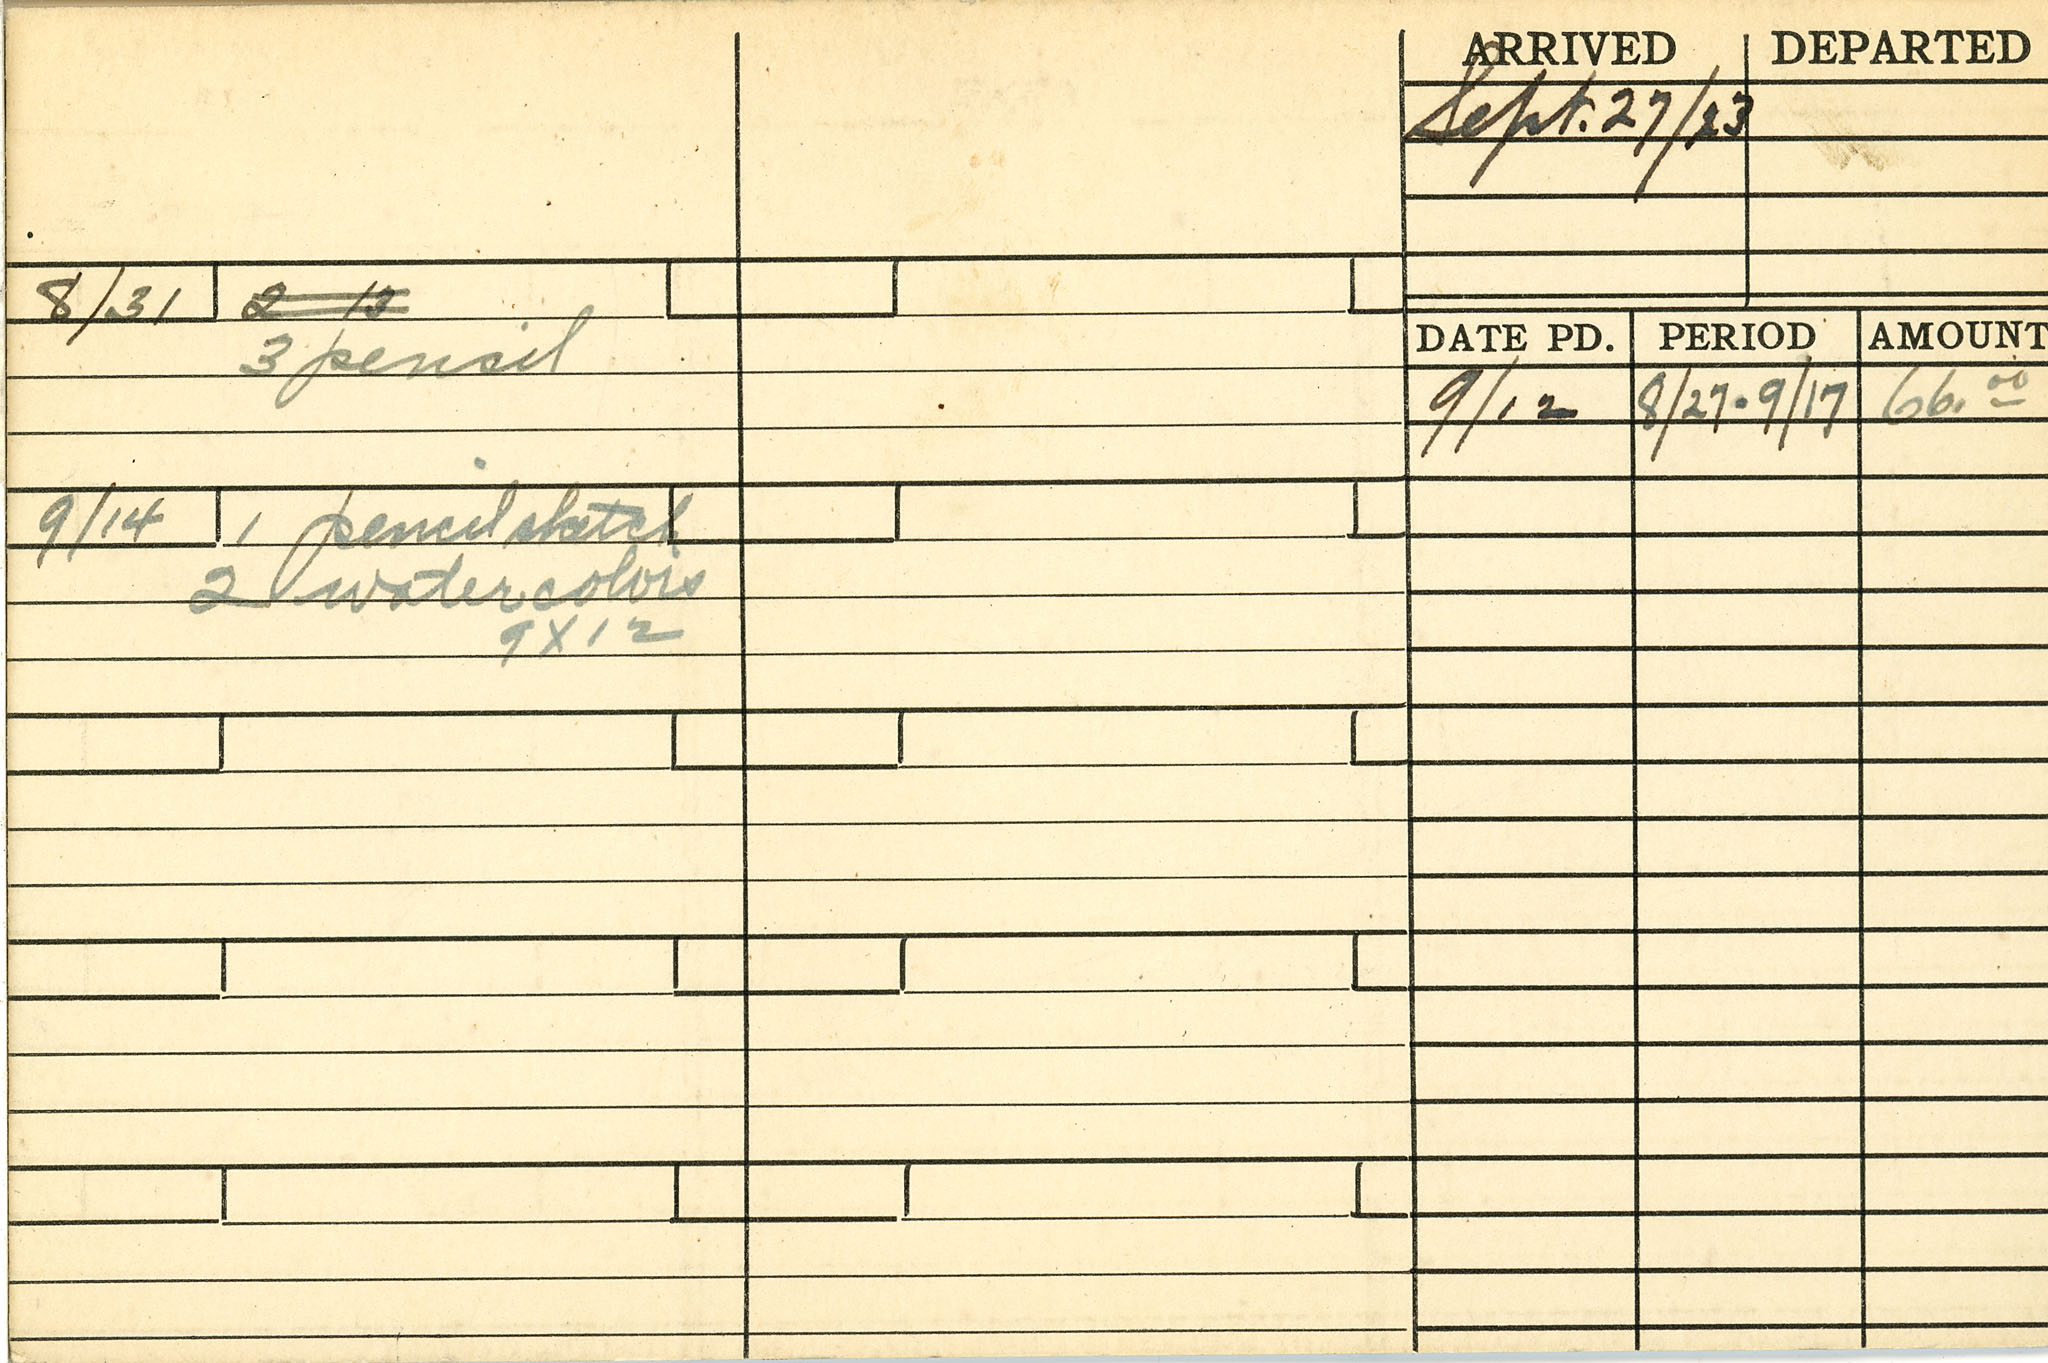 ARRIVED DEPARTED
Sept. 27/23
8/31 2 13
3 pencil
DATE PD. PERIOD AMOUNT
9/12 8/27 - 9/17 66.00
9/14 1 pencil sketch
2 watercolors
9 X 12